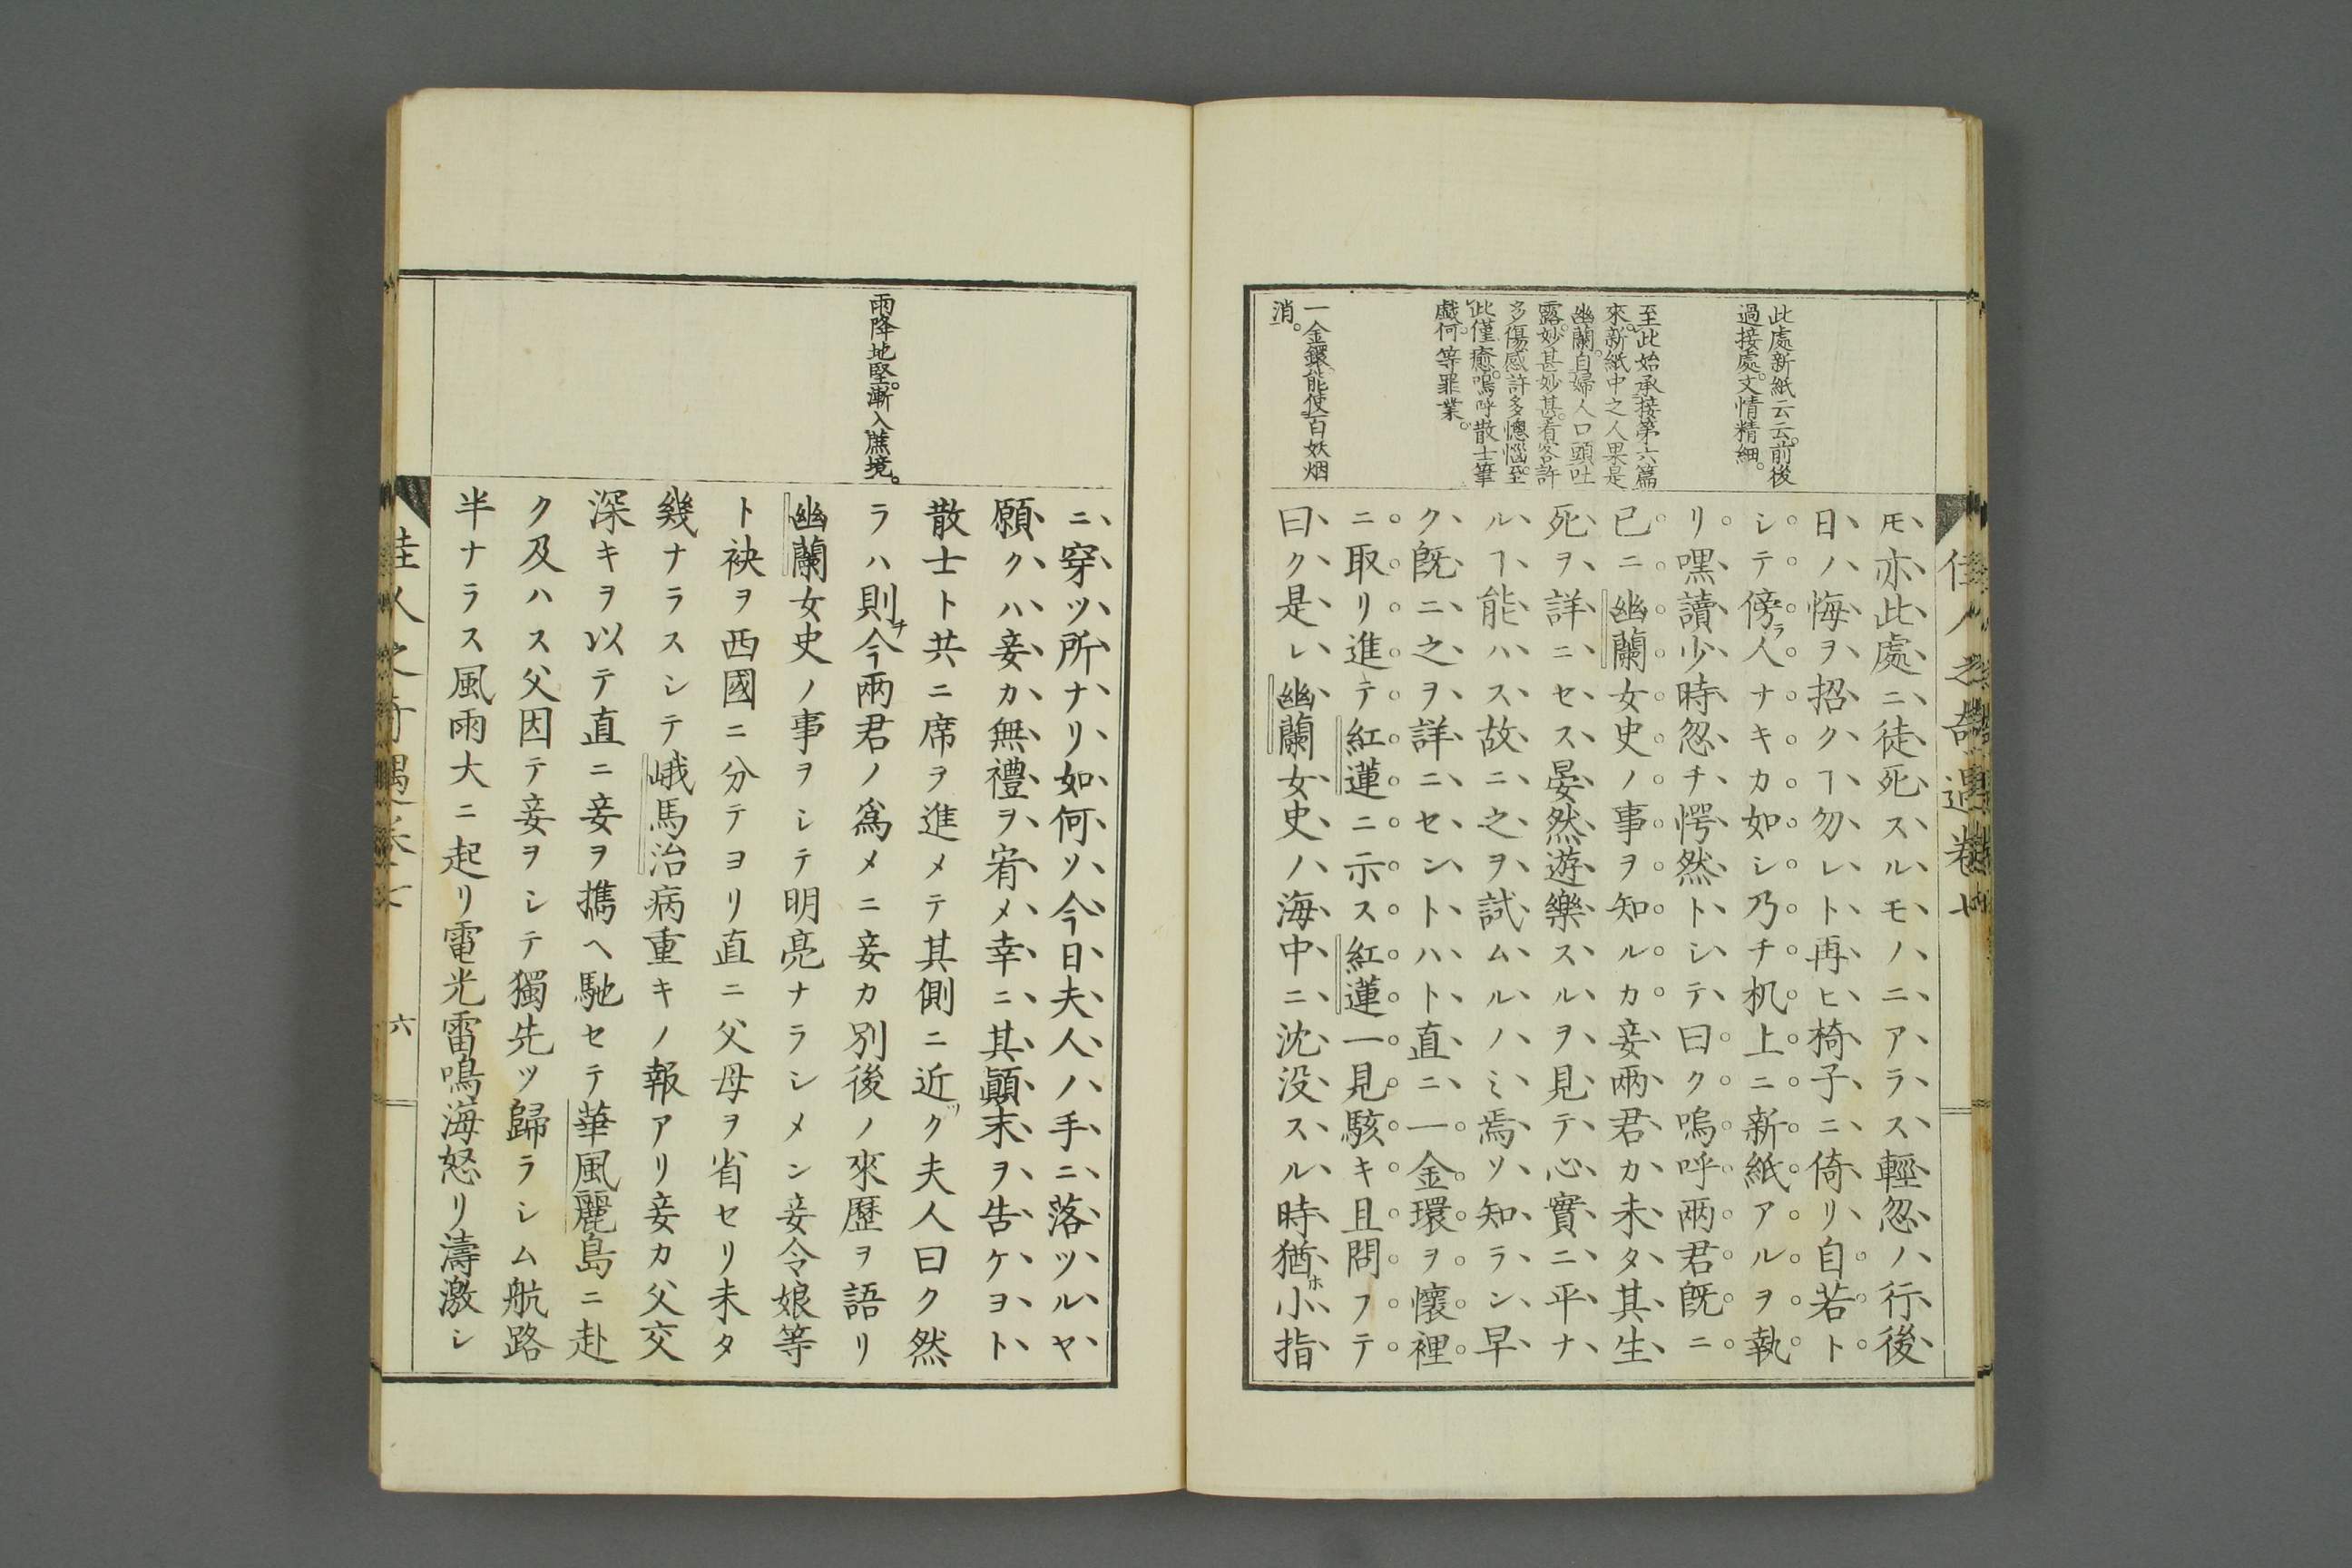 佳人之奇遇卷七
此處新紙云云。前後
過接處。文情精細。
至此始承接第六篇
來。新紙中之人果是
幽蘭。自婦人口頭吐
露。妙甚妙甚。看客許
多傷感許多懊惱。至
此僅癒。嗚呼散士筆
戲。何等罪業。
一金鐶、能使百妖烟
消。
𪜈亦此處ニ徒死スルモノニアラス輕忽ノ行後
日ノ悔ヲ招クヿ勿レト再ヒ椅子ニ倚リ自若ト
シテ傍ラ人ナキカ如シ乃チ机上ニ新紙アルヲ執
リ嘿讀少時忽チ愕然トシテ曰ク嗚呼兩君既ニ
已ニ幽蘭女史ノ事ヲ知ルカ妾兩君カ未タ其生
死ヲ詳ニセス晏然遊樂スルヲ見テ心實ニ平ナ
ルヿ能ハス故ニ之ヲ試ムルノミ焉ソ知ラン早
ク既ニ之ヲ詳ニセントハト直ニ一金環ヲ懷裡
ニ取リ進テ紅蓮ニ示ス紅蓮一見駭キ且問フテ
曰ク是レ幽蘭女史ノ海中ニ沈没スル時猶ホ小指
雨降地堅。漸入蔗境。
ニ穿ツ所ナリ如何ソ今日夫人ノ手ニ落ツルヤ
願クハ妾カ無禮ヲ宥メ幸ニ其顚末ヲ告ケヨト
散士ト共ニ席ヲ進メテ其側ニ近ツク夫人曰ク然
ラハ則チ今兩君ノ爲メニ妾カ別後ノ來歷ヲ語リ
幽蘭女史ノ事ヲシテ明亮ナラシメン妾令娘等
ト袂ヲ西國ニ分テヨリ直ニ父母ヲ省セリ未タ
幾ナラスシテ峨馬治病重キノ報アリ妾カ父交
深キヲ以テ直ニ妾ヲ擕ヘ馳セテ華風麗島ニ赴
ク及ハス父因テ妾ヲシテ獨先ツ歸ラシム航路
半ナラス風雨大ニ起リ電光雷鳴海怒リ濤激シ
佳人之奇遇卷七
六